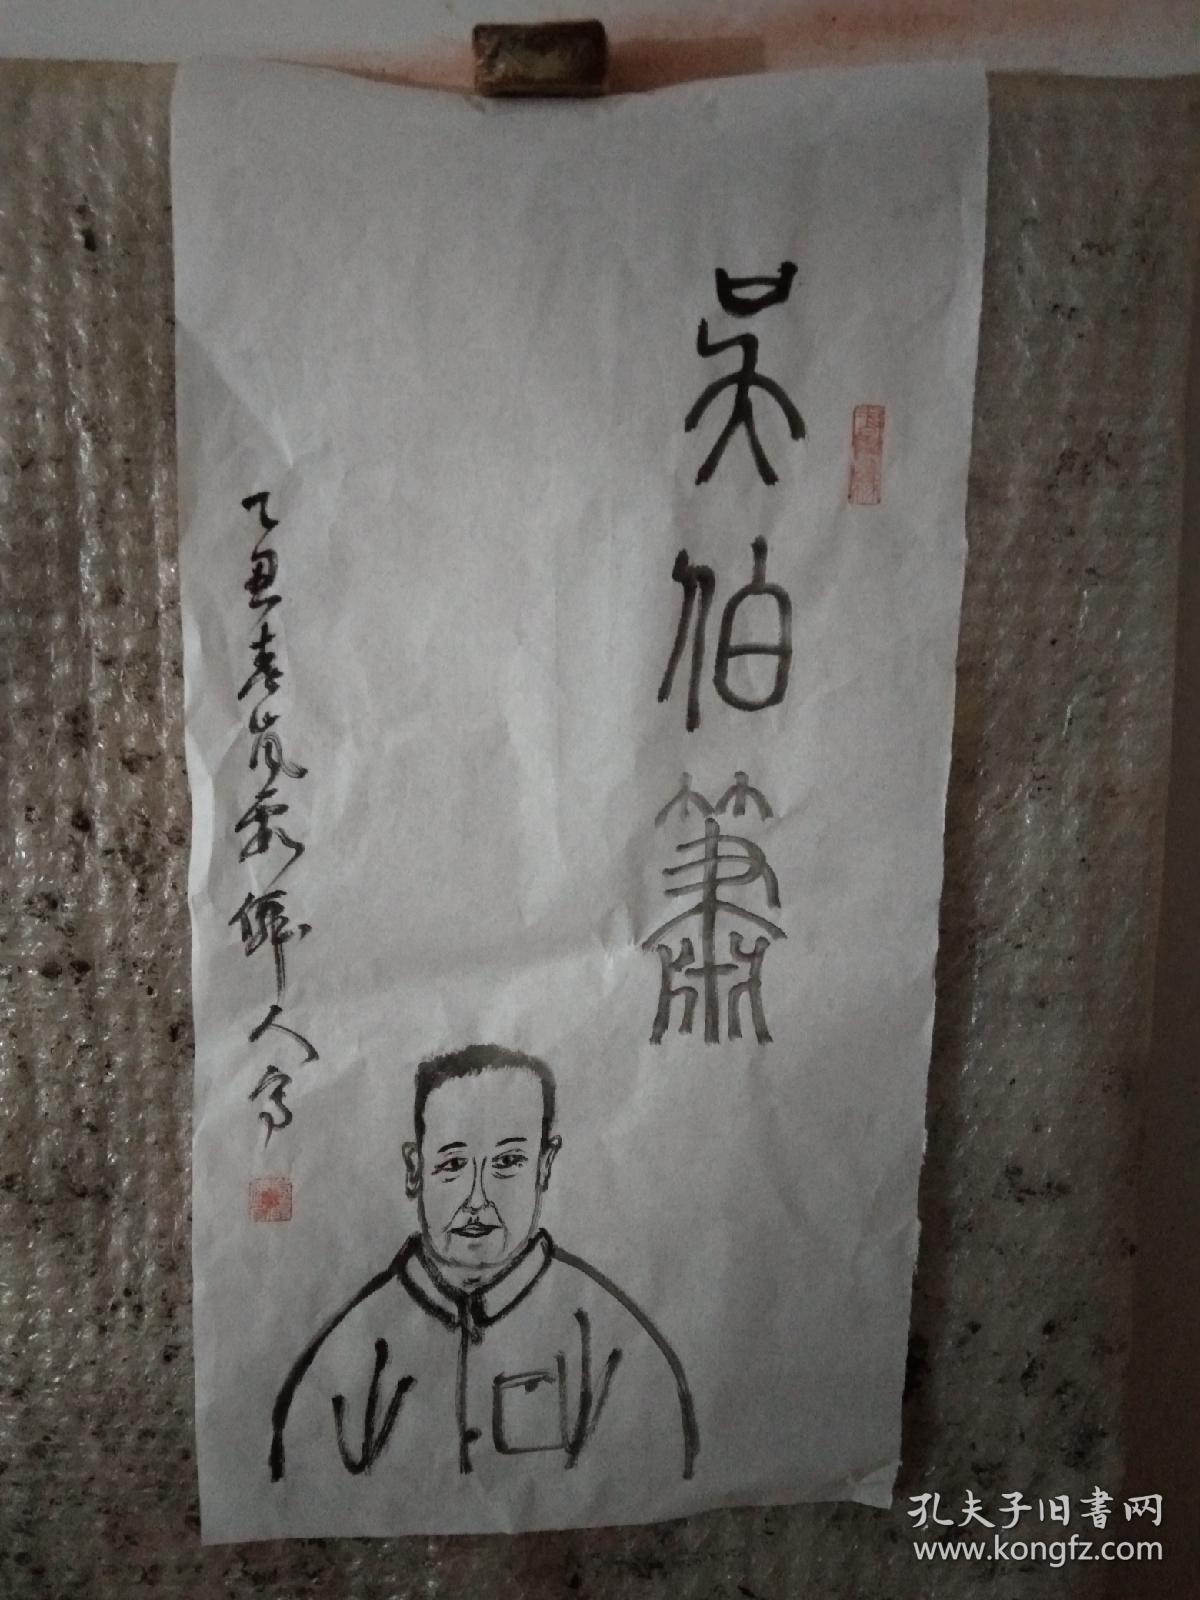 吴伯箫
乙丑春岚霞仙人写
孔夫子旧書网
www.kongfz.com